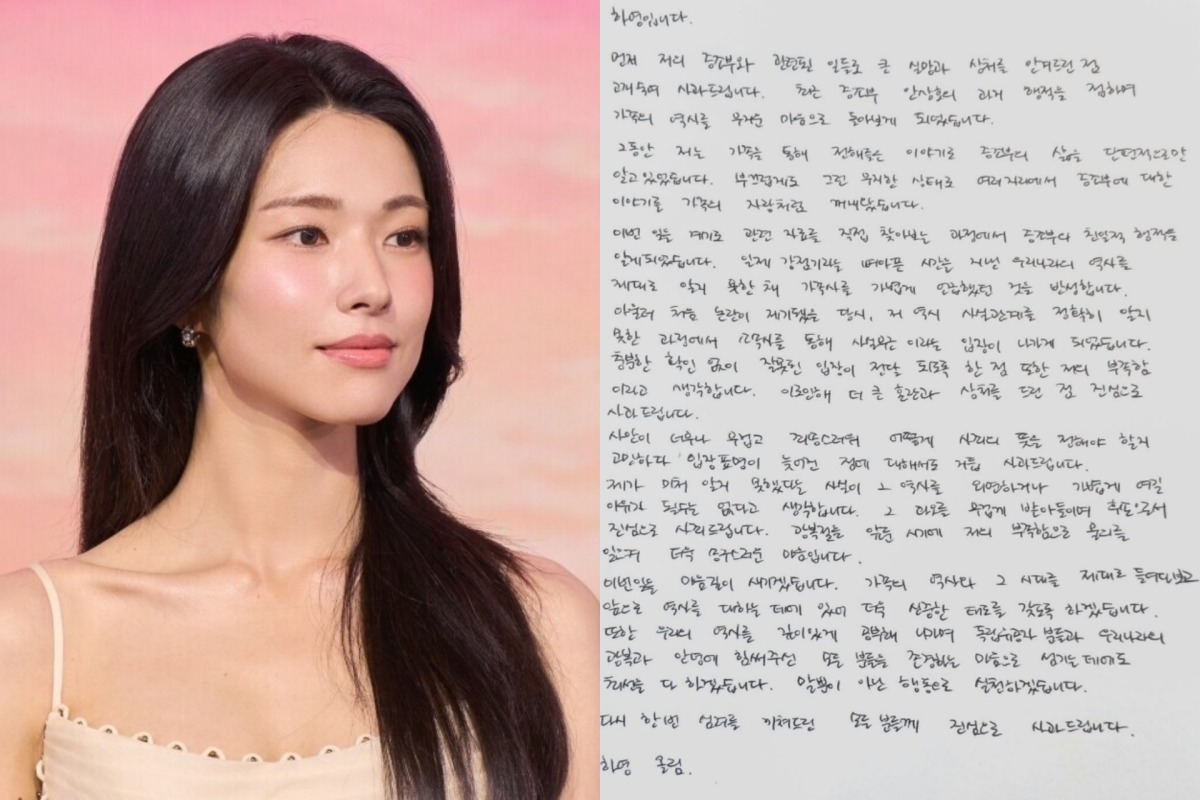 하영입니다.
먼저 저의 증조부와 관련된 일들로 큰 실망과 상처를 안겨드린 점
고개숙여 사과드립니다. 최근 증조부 안상호의 과거 행적을 접하며
가족의 역사를 무거운 마음으로 돌아보게 되었습니다.
그동안 저는 가족을 통해 전해들은 이야기로 증조부의 삶을 단편적으로만
알고있었습니다. 부끄럽게도 그런 무지한 상태로 여러자리에서 증조부에 대한
이야기를 가족의 자랑처럼 꺼내었습니다.
이번 일을 계기로 관련 자료를 직접 찾아보는 과정에서 증조부의 친일적 행적을
알게되었습니다. 일제 강점기라는 뼈아픈 시간을 지난 우리나라의 역사를
제대로 알지 못한 채 가족사를 가볍게 언급했던 것을 반성합니다.
아울러 처음 논란이 제기됐을 당시, 저 역시 사실관계를 정확히 알지
못한 과정에서 소속사를 통해 사실무근 이라는 입장이 나가게 되었습니다.
충분한 확인 없이 잘못된 입장이 전달 되도록 한 점 또한 저의 부족함
이라고 생각합니다. 이로인해 더 큰 혼란과 상처를 드린 점 진심으로
사과드립니다.
사안이 너무나 무겁고 죄송스러워 어떻게 사죄의 뜻을 전해야 할지
고민하다 입장표명이 늦어진 점에 대해서도 거듭 사과드립니다.
제가 미처 알지 못했다는 사실이 그 역사를 외면하거나 가볍게 여길
이유가 될수는 없다고 생각합니다. 그 과오를 무겁게 받아들이며 후손으로서
진심으로 사죄드립니다. 광복절을 앞둔 시기에 저의 부족함으로 물의를
일으켜 더욱 송구스러운 마음입니다.
이번일을 마음깊이 새기겠습니다. 가족의 역사와 그 시대를 제대로 들여다보고
앞으로 역사를 대하는 데에 있어 더욱 신중한 태도를 갖도록 하겠습니다.
또한 우리의 역사를 깊이있게 공부해 나가며 독립유공자 분들과 우리나라의
광복과 안녕에 힘써주신 모든 분들을 존경하는 마음으로 섬기는데에도
최선을 다 하겠습니다. 말뿐이 아닌 행동으로 실천하겠습니다.
다시 한번 심려를 끼쳐드린 모든 분들께 진심으로 사과드립니다.
하영 올림.